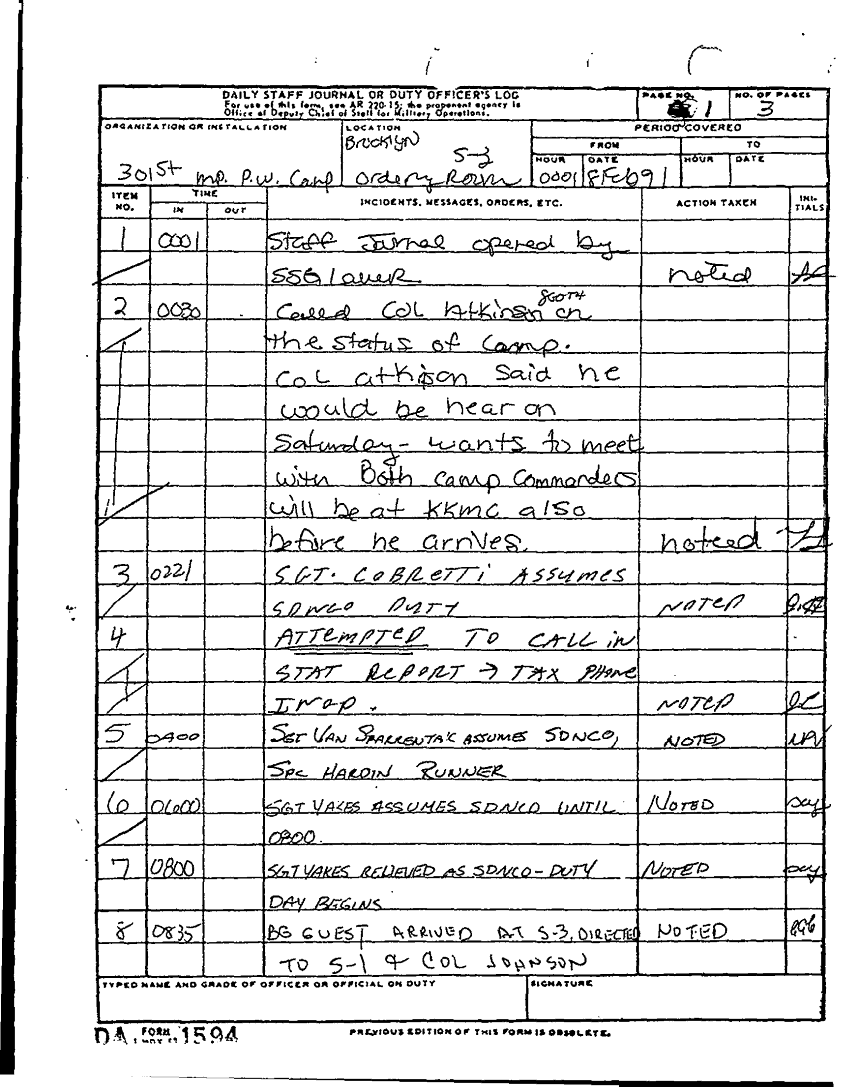 DAILY STAFF JOURNAL OR DUTY OFFICER'S LOG
For use of this form, see AR 220-15; the proponent agency is
Office of Deputy Chief of Staff for Military Operations.
PAGE NO.
1
NO. OF PAGES
3
ORGANIZATION OR INSTALLATION
301st mp. P.W. Camp
LOCATION
Brooklyn
S-3
Orderly Room
PERIOD COVERED
FROM
TO
HOUR DATE HOUR DATE
0001 8Feb91
ITEM NO.
TIME
IN OUT
INCIDENTS, MESSAGES, ORDERS, ETC.
ACTION TAKEN
INITIALS
1 0001 Staff Jurnal opened by
SSG lauer noted
2 0030 Called COL Atkinson 800TH on
the status of Camp.
COL atkison said he
would be hear on
Saturday - wants to meet
with Both camp Commanders
will be at KKMC also
before he arrives. noteed
3 0221 SGT. COBRETTI ASSUMES
SDNCO DUTY NOTED
4 ATTEMPTED TO CALL IN
STAT REPORT → TAX PHONE
INOP. NOTED JC
5 0400 SGT VAN ASSUMES SDNCO, NOTED
SPC HARDIN RUNNER
6 0600 SGT YAKES ASSUMES SDNCO UNTIL NOTED
0800.
7 0800 SGT YAKES RELIEVED AS SDNCO - DUTY NOTED
DAY BEGINS
8 0835 BG GUEST ARRIVED AT S-3, DIRECTED NOTED
TO S-1 & COL JOHNSON
TYPED NAME AND GRADE OF OFFICER OR OFFICIAL ON DUTY
SIGNATURE
DA FORM 1594
PREVIOUS EDITION OF THIS FORM IS OBSOLETE.